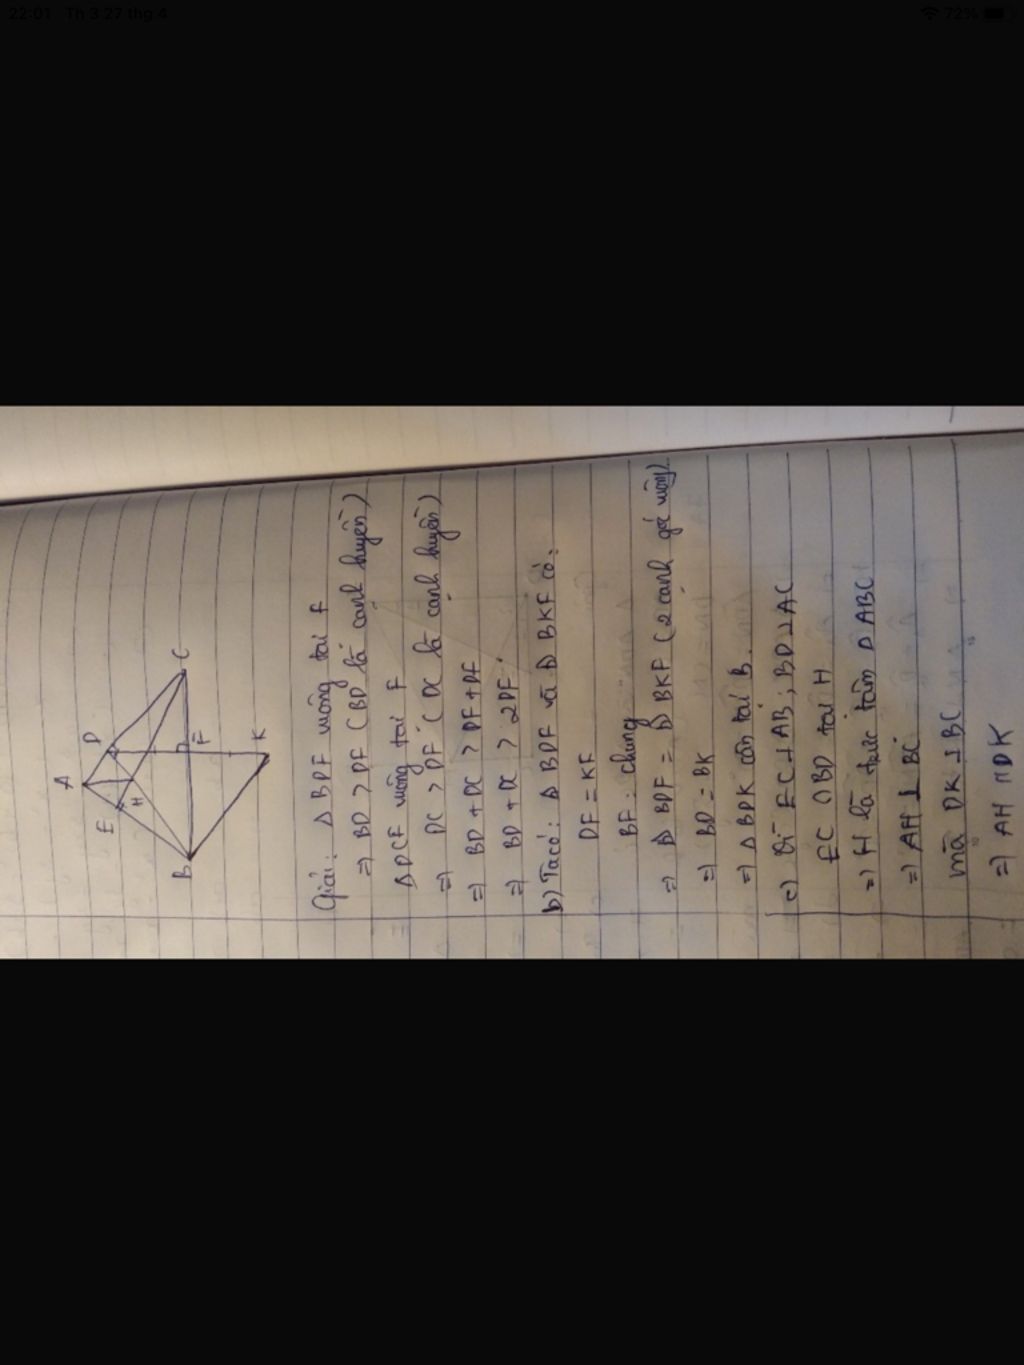 22:01 Th 3 27 thg 4
72%
A
D
E
H
C
F
B
K
Giải: Δ BDF vuông tại F
=) BD > DF (BD là cạnh huyền)
Δ DCF vuông tại F
=) DC > DF (DC là cạnh huyền)
=) BD + DC > DF + DF
=) BD + DC > 2DF
b) Ta có: Δ BDF và Δ BKF có:
DF = KF
BF: chung
=) Δ BDF = Δ BKF (2 cạnh góc vuông)
=) BD = BK
=) Δ BDK cân tại B.
c) Vì EC ⊥ AB; BD ⊥ AC
EC ∩ BD tại H
=) H là trực tâm Δ ABC
=) AH ⊥ BC
mà DK ⊥ BC
=) AH // DK